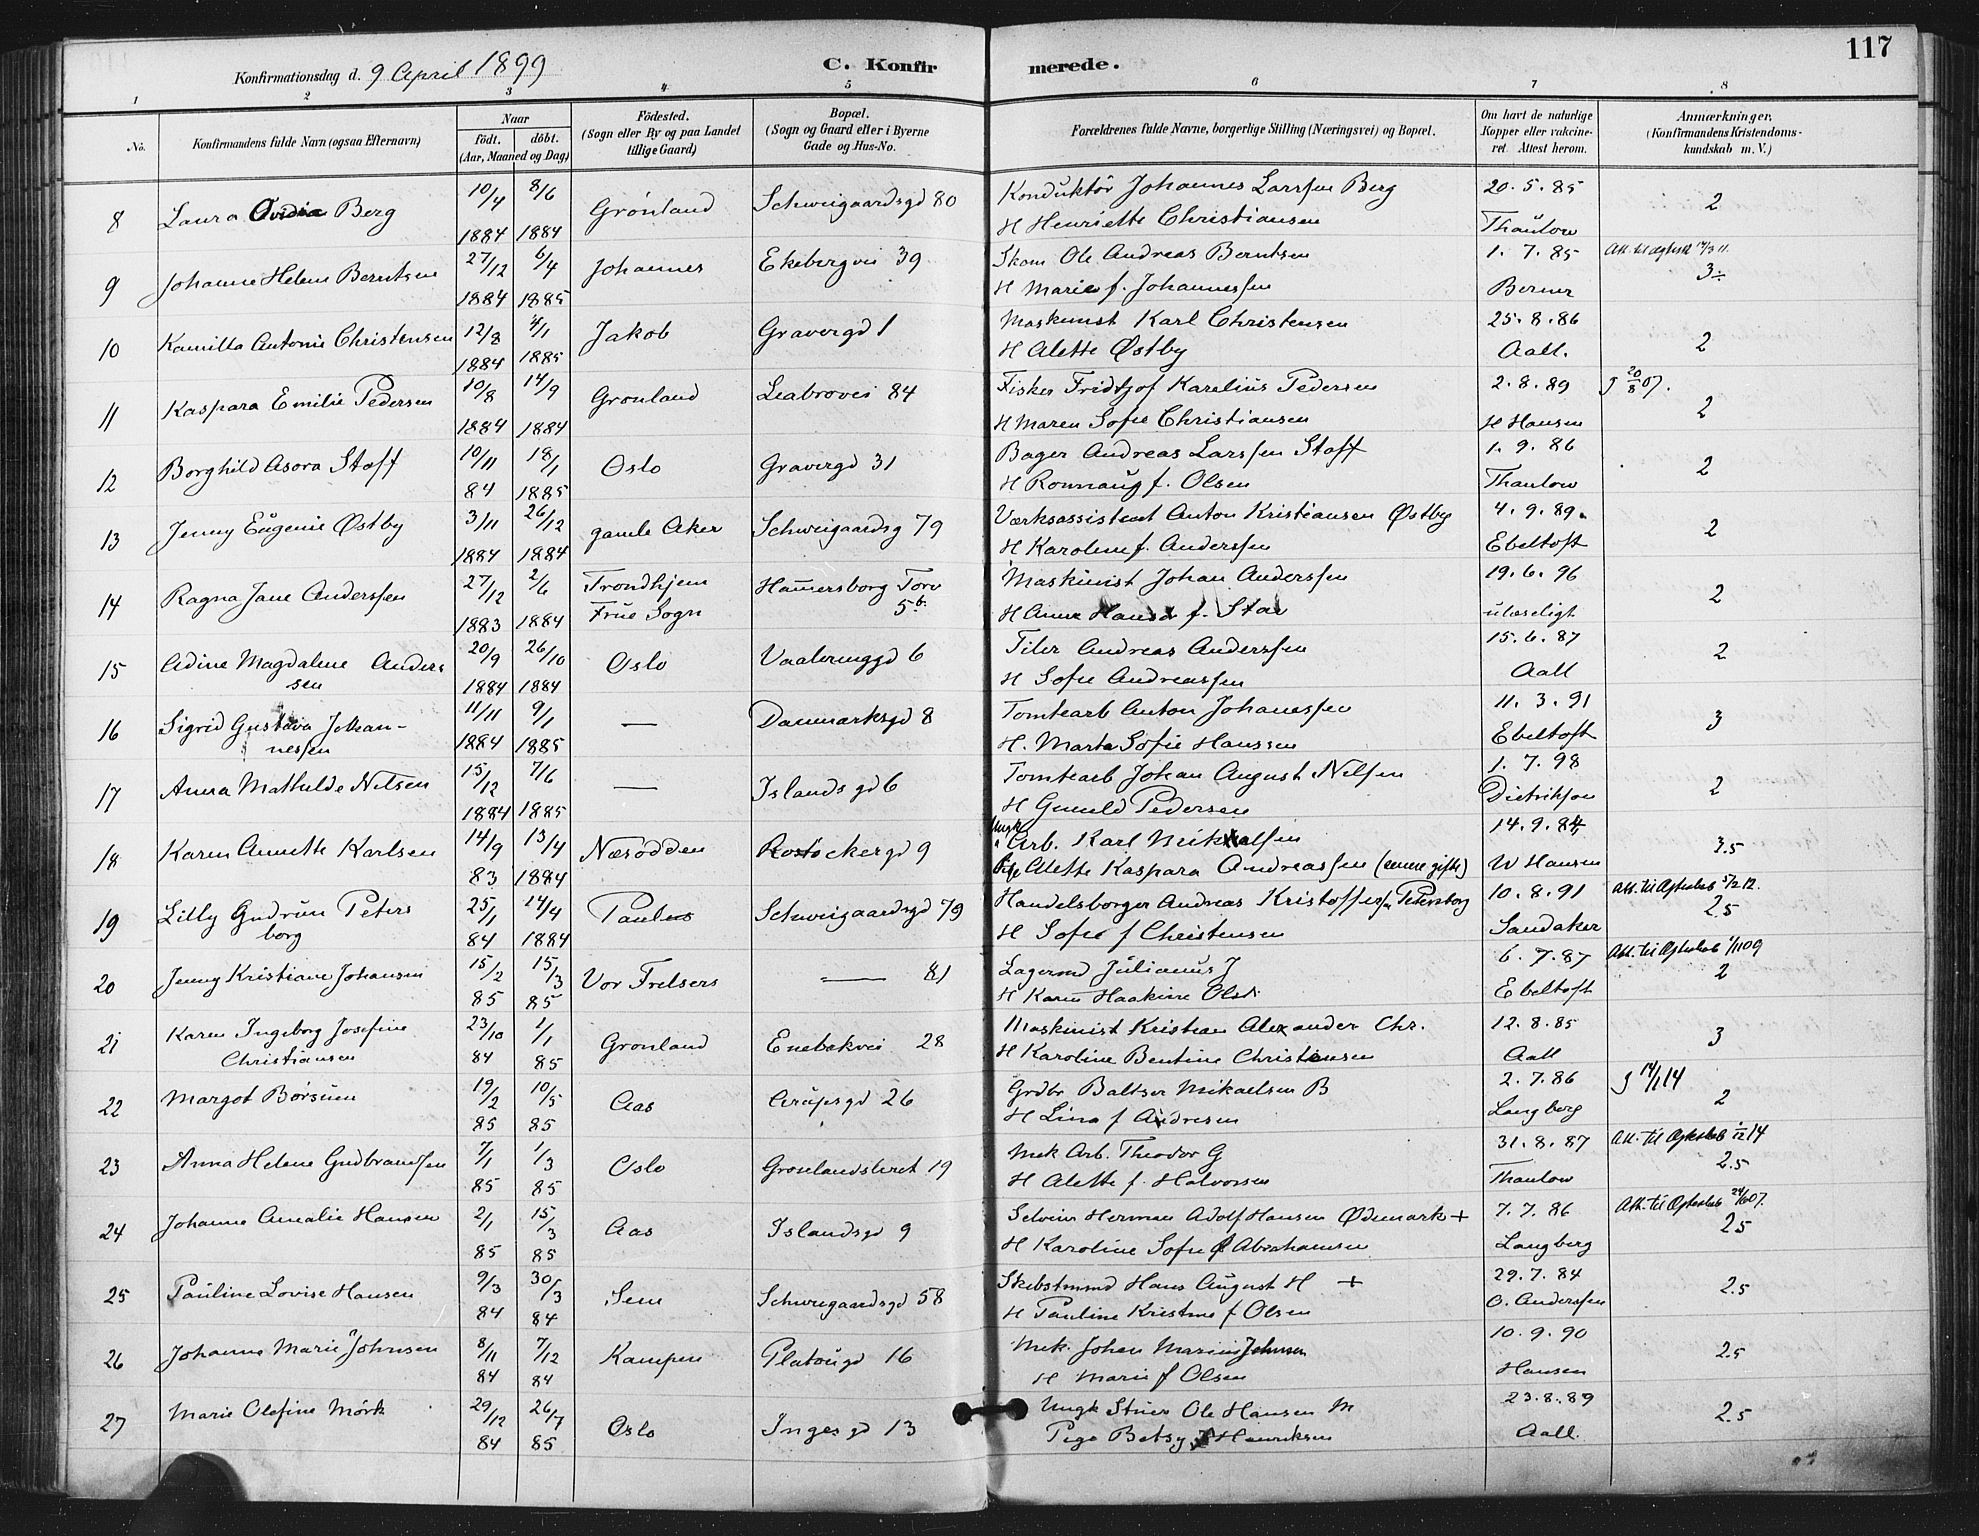 117
Konfirmationsdag d. 9 April 1899 C. Konfirmerede.
1 2 3 4 5 6 7 8
No. Konfirmandens fulde Navn (ogsaa Efternavn) Naar født. døbt. (Aar, Maaned og Dag) Födested. (Sogn eller By og paa Landet tillige Gaard) Bopæl. (Sogn og Gaard eller i Byerne Gade og Hus-No. Forældrenes fulde Navne, borgerlige Stilling (Næringsvei) og Bopæl. Om havt de naturlige Kopper eller vakcineret. Attest herom. Anmærkninger. (Konfirmandens Kristendomskundskab m. V.)
8 Laura Ovidia Berg 10/4 8/6 Grönland Schweigaardsgd 80 Konduktör Johannes Larssen Berg 20. 5. 85 2
1884 1884 H Henriette Christiansen Thaulow
9 Johanne Helene Berntsen 27/12 6/4 Johannes Ekebergvei 39 Skom Ole Andreas Berntsen 1. 7. 85 Att. til Ægtesk 14/3 11.
1884 1885 H Marie f. Johannessen Berner 3÷
10 Kamilla Antonie Christensen 12/8 4/1 Jakob Gravergd 1 Maskinist Karl Christensen 25. 8. 86 2
1884 1885 H Alette Østby Aall.
11 Kaspara Emilie Pedersen 10/8 14/9 Grønland Leabrovei 84 Fisker Fridtjof Karelius Pedersen 2. 8. 89 J 20/8 07.
1884 1884 H Maren Sofie Christiansen H Hansen 2
12 Borghild Asora Staff 10/11 18/1 Oslo Gravergd 31 Bager Andreas Larssen Staff 1. 9. 86 2
84 1885 H Ronnaug f. Olsen Thaulow
13 Jenny Eugenie Østby 3/11 26/12 gamle Aker Schweigaardsg 79 Værksassistent Anton Kristiansen Østby 4. 9. 89. 2
1884 1884 H Karoline f. Anderssen Ebeltoft
14 Ragna Jane Anderssen 27/12 2/6 Trondhjem Hamersborg Torv Maskinist Johan Anderssen 19. 6. 96 2
1883 1884 Frue Sogn 5b. H Anna Hansd f. Stav ulæseligt
15 Adine Magdalene Anders 20/9 26/10 Oslo Vaalerenggd 6 Tiler Andreas Anderssen 15. 6. 87 2
sen 1884 1884 H Sofie Andreassen Aall
16 Sigrid Gustava Johan- 11/11 9/1 — Danmarksgd 8 Tomtearb Anton Johanessen 11. 3. 91 3
nessen 1884 1885 H. Marta Sofie Hanssen Ebeltoft
17 Anna Mathilde Nilsen 15/12 7/6 — Islandsgd 6 Tomtearb Johan August Nilsen 1. 7. 98 2
1884 1885 H Gunild Pedersen Dietrikson
18 Karen Annette Karlsen 14/9 13/4 Næsodden Rostockergd 9 Ungk Arb. Karl Mikkalsen 14. 9. 84 3.5
83 1884 Pige Alette Kaspara Andreassen (senere gifte) W Hansen
19 Lilly Gudrun Peters 25/1 14/4 Paulus Schweigaardsgd 79 Handelsborger Andreas Kristoffersen Petersborg 10. 8. 91 Att. til Ægteskab 5/2 12.
borg 84 1884 H Sofie f Christensen Sandaker 2.5
20 Jenny Kristiane Johansen 15/2 15/3 Vor Frelsers — 81 Lagermd Julianus J 6. 7. 87 Att. til Ægteskab 1/11 09
85 85 H Karen Haakine Olsd. Ebeltoft 2
21 Karen Ingeborg Josefine 23/10 1/1 Grønland Enebakvei 28 Maskinist Kristian Alexander Chr. 12. 8. 85 3
Christiansen 84 85 H Karoline Bentine Christensen Aall
22 Margot Børsum 19/2 10/5 Aas Arupsgd 26 Grdbr Baltser Mikaelsen B 2. 7. 86 J 14/1 14
85 85 H Lina f Andresen Langberg 2
23 Anna Helene Gudbrandsen 7/1 1/3 Oslo Grønlandsleret 19 Mek Arb. Theodor G 31. 8. 87 Att. til Ægteskab 1/12 14
85 85 H Alette f. Halvorsen Thaulow 2.5
24 Johanne Amalie Hansen 2/1 15/3 Aas Islandsgd 9 Selveier Herman Adolf Hansen Ødemark + 7. 7. 86 Att. til Ægteskab 24/6 07.
85 85 H Karoline Sofie f Abrahamsen Langberg 2.5
25 Pauline Lovise Hansen 9/3 30/3 Sem Schweigaardsgd 58 Skibstmmd Hans August H + 29. 7. 84 2.5
84 84 H Pauline Kristine f Olsen O. Anderssen
26 Johanne Marie Johnsen 8/11 7/12 Kampen Platougd 16 Mek. Johan Marius Johnsen 10. 9. 90 2.5
84 84 H Marie f Olsen Hansen
27 Marie Olefine Mörk 29/12 26/7 Oslo Ingesgd 13 Ungk Stuer Ole Hansen M 23. 8. 89 2.5
84 85 Pige Betsy Henriksen Aall.